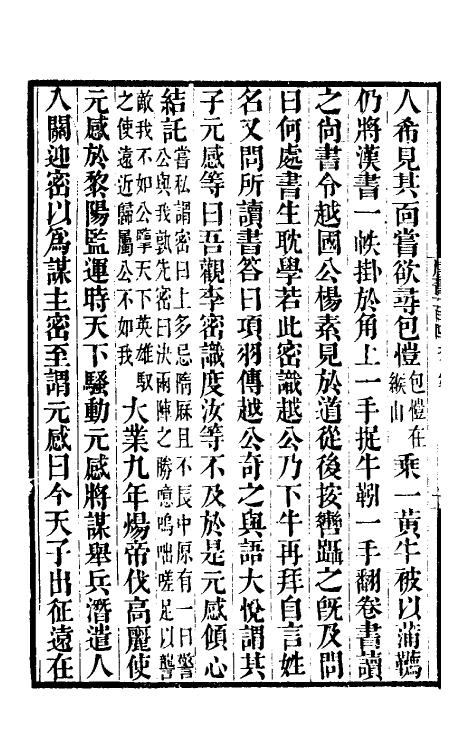 人希見其面嘗欲尋包愷包愷在緱山乘一黃牛被以蒲韉
仍將漢書一帙掛於角上一手捉牛靷一手翻卷書讀
之尚書令越國公楊素見於道從後按轡躡之既及問
曰何處書生耽學若此密識越公乃下牛再拜自言姓
名又問所讀書答曰項羽傳越公奇之與語大悅謂其
子元感等曰吾觀李密識度汝等不及於是元感傾心
結託嘗私謂密曰上多忌隋厤且不長中原有一日警公與我孰先密曰決兩陣之勝噫嗚咄嗟足以讋敵我不如公擥天下英雄馭之使遠近歸屬公不如我大業九年煬帝伐高麗使
元感於黎陽監運時天下騷動元感將謀舉兵潛遣人
入關迎密以爲謀主密至謂元感曰今天子出征遠在